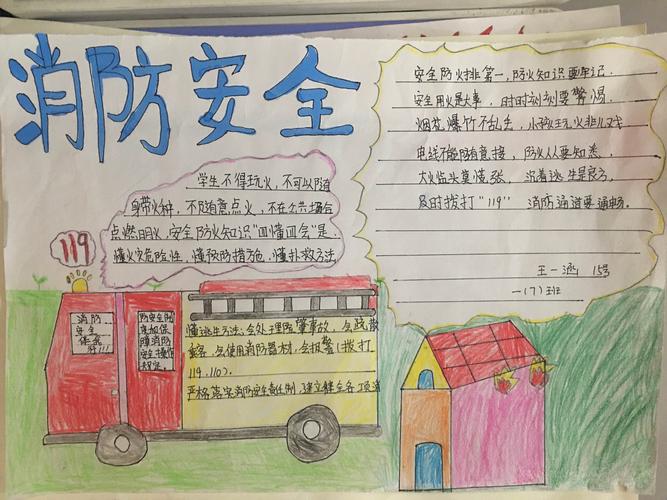 消防安全
学生不得玩火,不可以随
身带火种,不随意点火,不在公共场合
点燃明火,安全防火知识"四懂四会"是:
懂火灾危险性,懂预防措施,懂扑救方法
119
安全防火排第一,防火知识要牢记.
安全用火是大事,时时刻刻要警惕.
烟花爆竹不乱丢,小孩玩火非儿戏
电线不能随意接,防火人人要知悉.
大火临头莫慌张,沉着逃生是良方,
及时拨打"119"消防通道要通畅.
王一涵 15号
一(7)班
消防
安全
伴我
行!!!
防安全制
度加保
障消防
安全操作
规定。
懂逃生方法;会处理险肇事故,会疏散
乘客,会使用消防器材,会报警(拨打
119.110).
严格落实消防安全责任制,建立健全各项消